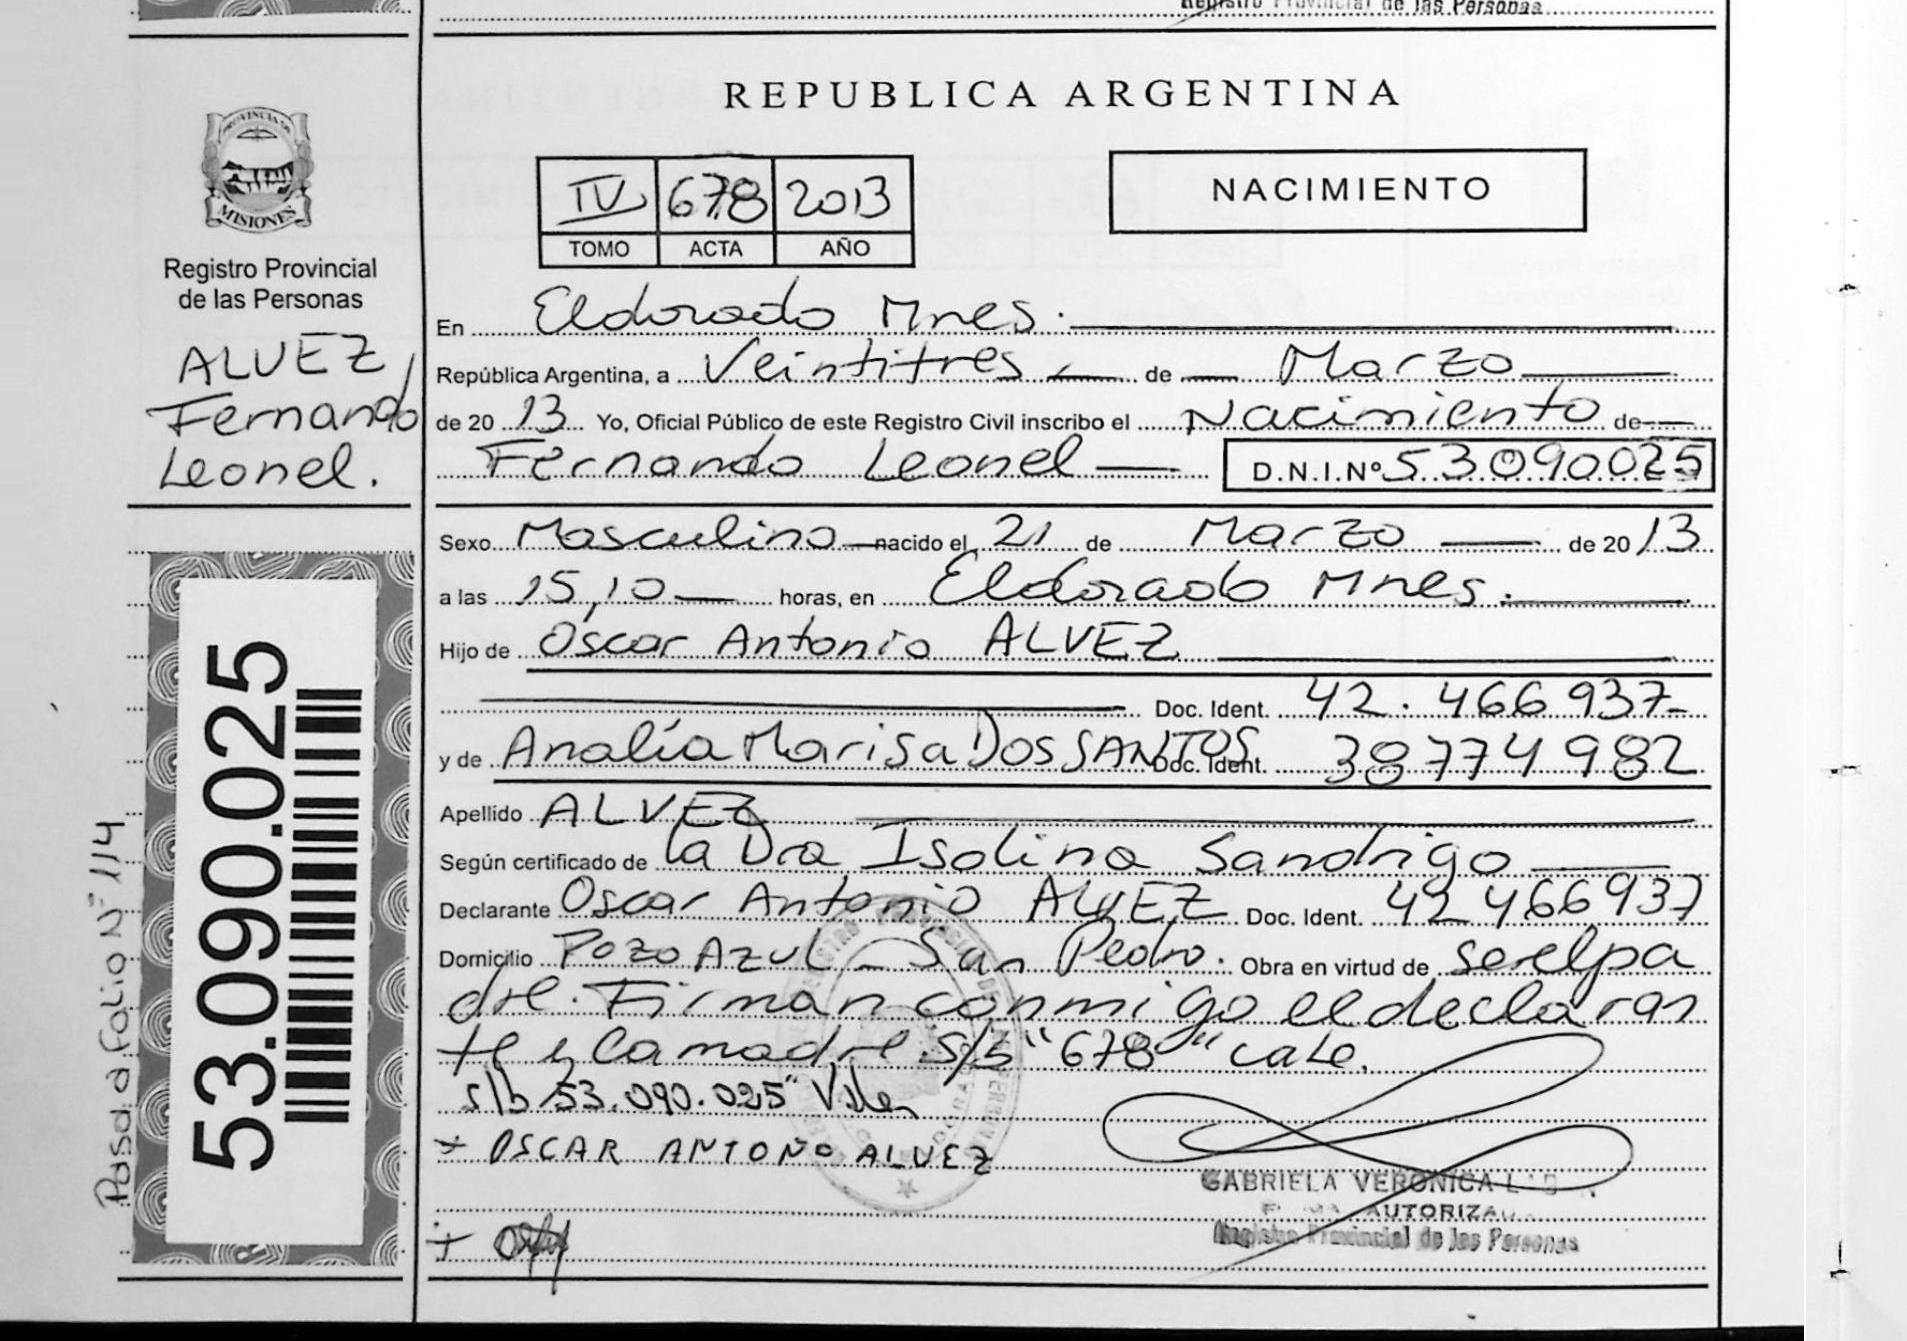 Registro Provincial de las Personas
REPUBLICA ARGENTINA
PROVINCIA DE
MISIONES
Registro Provincial
de las Personas
ALVEZ,
Fernando
Leonel.
IV 678 2013
TOMO ACTA AÑO
NACIMIENTO
En Eldorado Mnes.
República Argentina, a Veintitres de Marzo
de 2013 Yo, Oficial Público de este Registro Civil inscribo el Nacimiento de
Fernando Leonel D.N.I.Nº 53.090.025
Sexo Masculino nacido el 21 de Marzo de 2013
a las 15,10 horas, en Eldorado Mnes.
Hijo de Oscar Antonio ALVEZ
Doc. Ident. 42.466937-
y de Analía Marisa Dos SANTOS Doc. Ident. 38774982
Apellido ALVEZ
Según certificado de la Dra Isolina Sandrigo
Declarante Oscar Antonio ALVEZ Doc. Ident. 42466937
Domicilio Pozo Azul - San Pedro. Obra en virtud de ser el pa
dre. Firman conmigo el declaran
te y la madre s/b "678" vale.
s/b 53.090.025" Valen
+ OSCAR ANTOÑO ALVEZ
GABRIELA VERONICA
AUTORIZA
Registro Provincial de las Personas
53.090.025
Pasa a Folio Nº 114